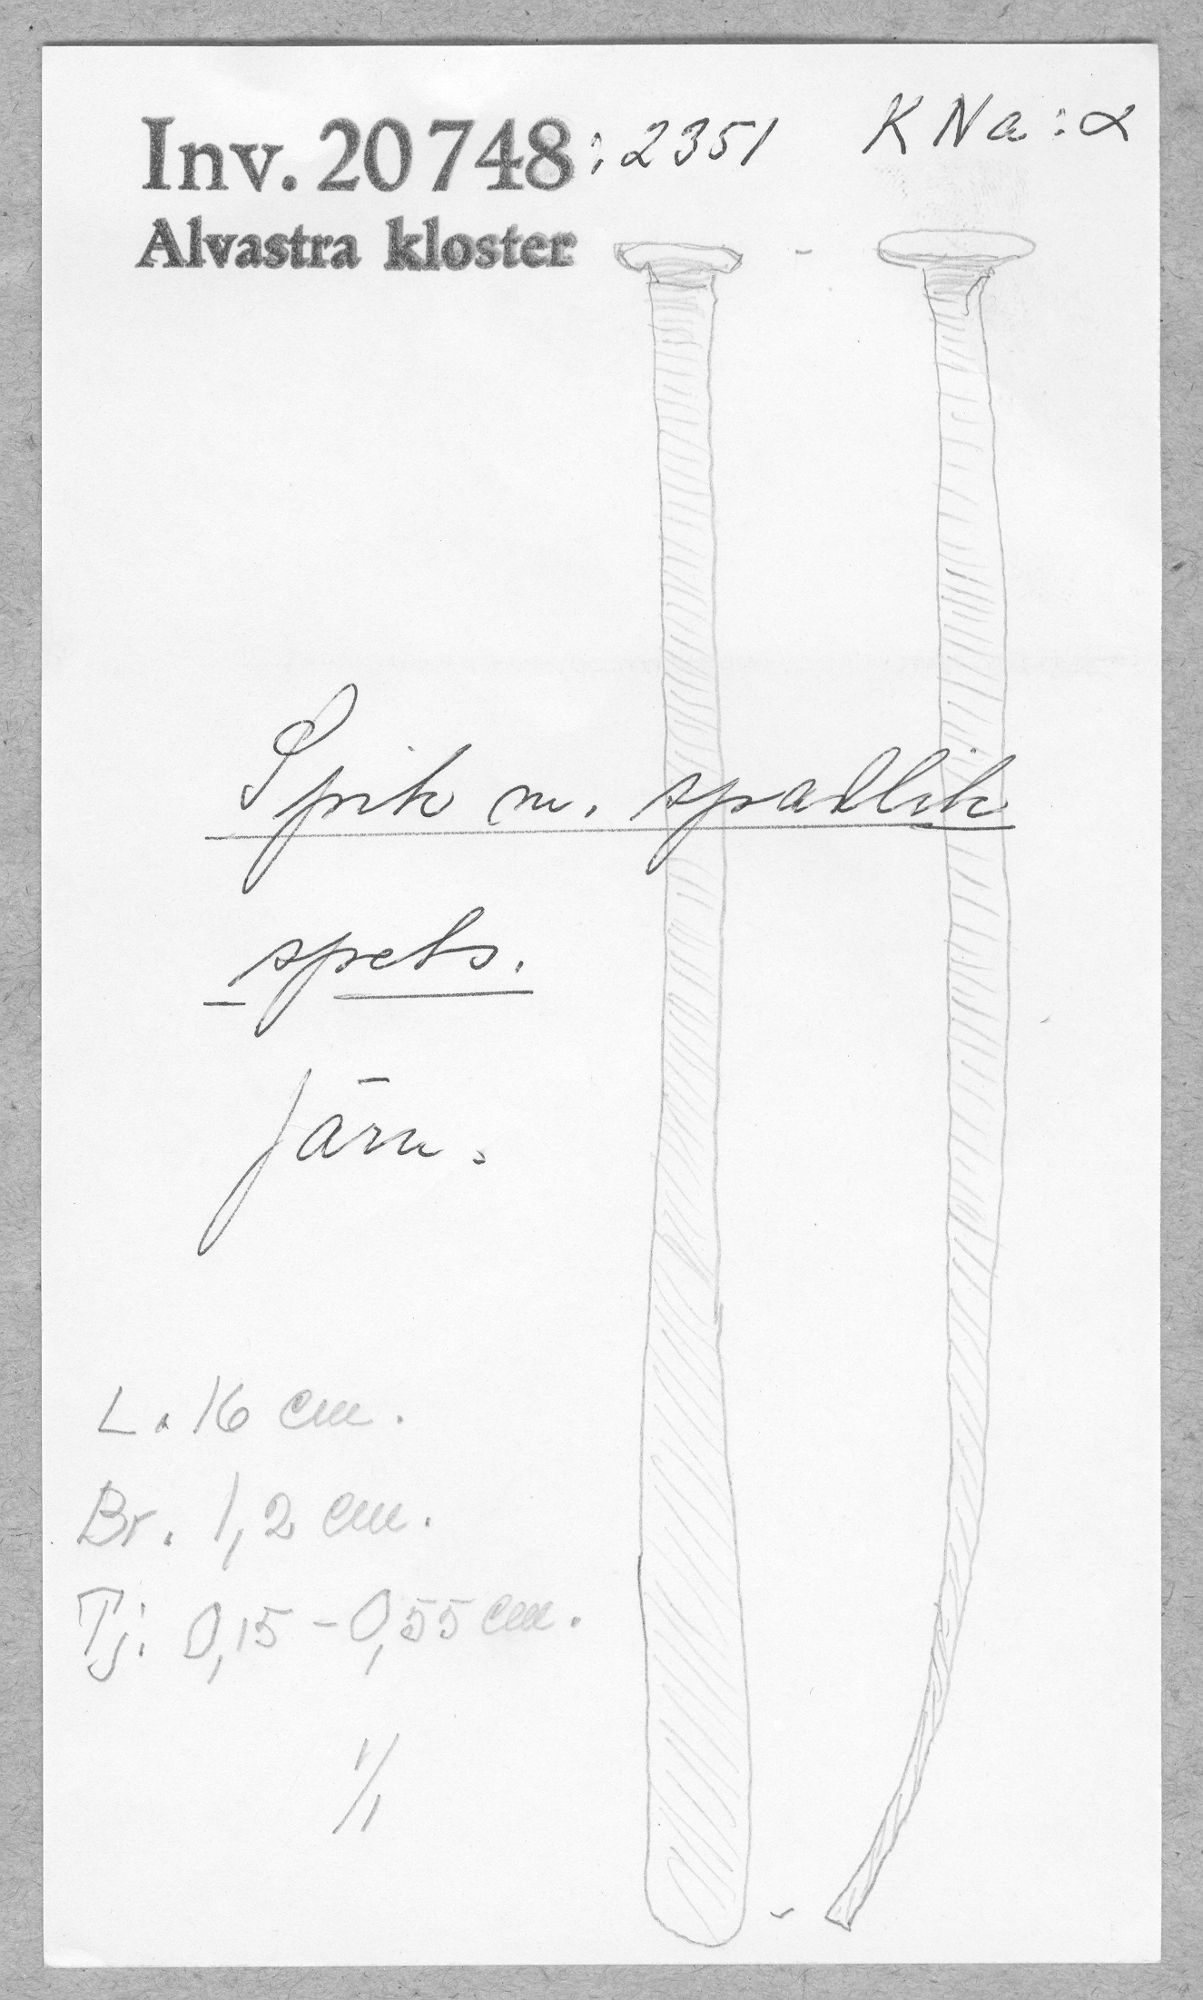 Inv. 20748:2351 KNa:α
Alvastra kloster
Spik m. spadlik
spets.
Järn.
L. 16 cm.
Br. 1,2 cm.
Tj: 0,15-0,55 cm.
1/1